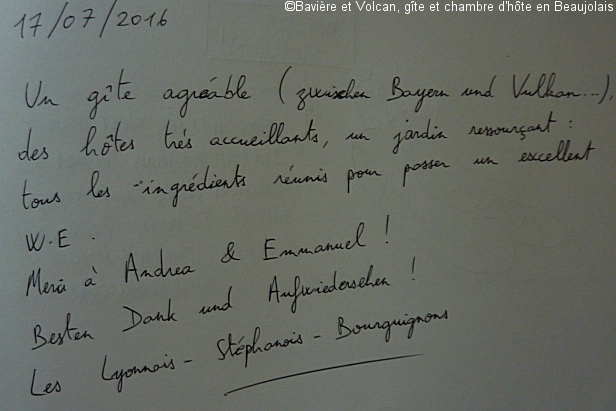 ©Bavière et Volcan, gîte et chambre d'hôte en Beaujolais
17/07/2016
Un gîte agréable (zwischen Bayern und Vulkan...),
des hôtes très accueillants, un jardin ressourçant :
tous les ingrédients réunis pour passer un excellent
W.E.
Merci à Andrea & Emmanuel !
Besten Dank und Aufwiedersehen !
Les Lyonnais - Stéphanois - Bourguignons